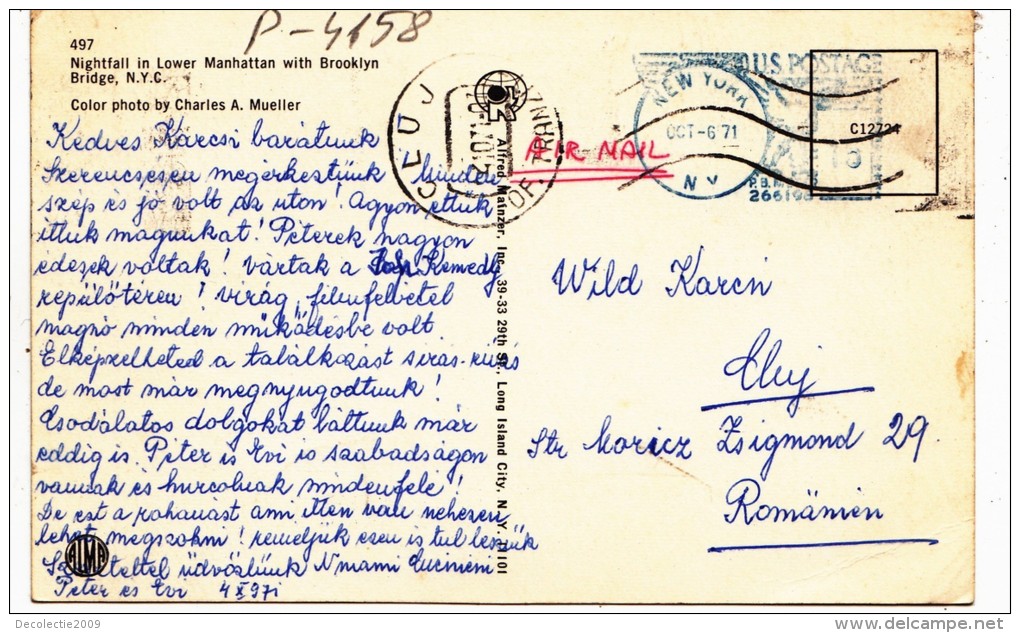 P-4158
497
Nightfall in Lower Manhattan with Brooklyn
Bridge, N.Y.C.
Color photo by Charles A. Mueller
Kedves Karcsi barátunk
Szerencsésen megérkeztünk Minden
szép és jó volt az úton! Agyon ettük
ittuk magunkat! Péterek nagyon
édesek voltak! Vártak a Kennedy
repülőtéren! virág, filmfelvétel
magnó minden működésbe volt.
Elképzelheted a találkozást sírás-rívás
de most már megnyugodtunk!
Csodálatos dolgokat láttunk már
eddig is. Péter is Évi is szabadságon
vannak és hurcolnak mindenfelé!
De ezt a rohanást ami itten van nehezen
lehet megszokni! reméljük ezen is túl leszünk
Szeretettel üdvözlünk
Péter és Évi 4 X 971
ALMA
Alfred Mainzer, Inc., 39-33 29th St., Long Island City, N.Y. 11101
CLUJ
OF. TRANZ
AIR MAIL
NEW YORK
OCT-6'71
N.Y.
U.S. POSTAGE
P.B. METER
C12724
Wild Karcsi
Cluj
Str Moricz Zsigmond 29.
Románien
Decolectie2009
delcampe.net